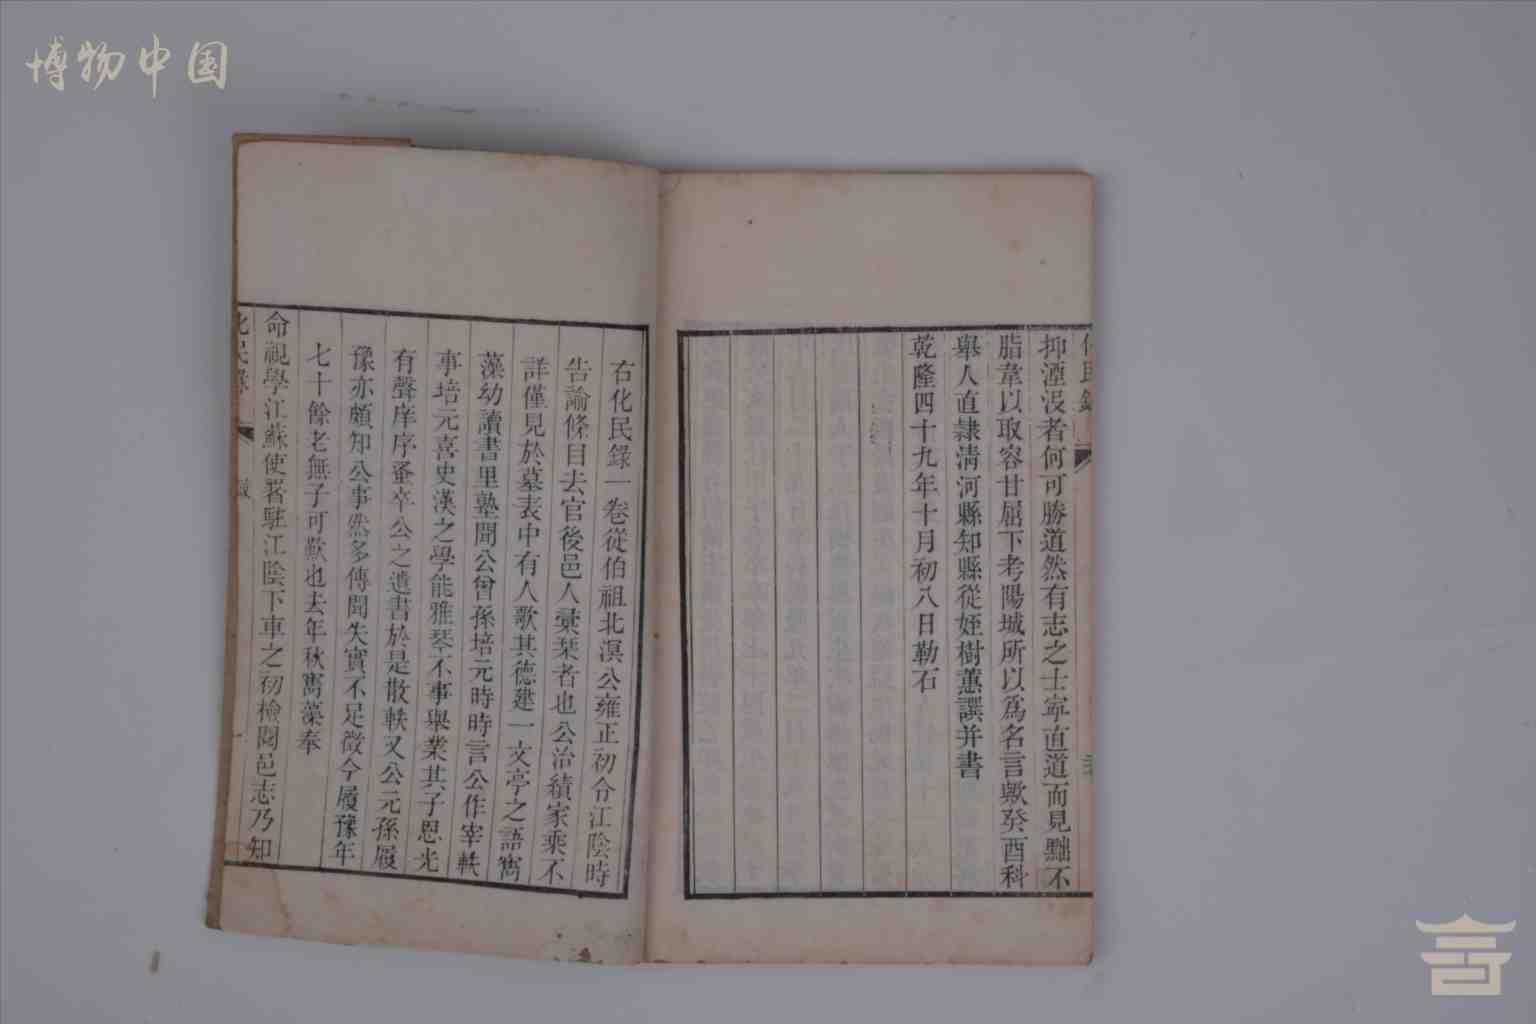 博物中国
化民錄
抑湮沒者何可勝道然有志之士寧直道而見黜不
脂韋以取容甘屈下考陽城所以爲名言歟癸酉科
舉人直隸清河縣知縣從姪樹蕙譔并書
乾隆四十九年十月初八日勒石
右化民錄一卷從伯祖北溟公雍正初令江陰時
告諭條目去官後邑人彙栞者也公治績家乘不
詳僅見於墓表中有人歌其德建一文亭之語寯
藻幼讀書里塾聞公曾孫培元時時言公作宰軼
事培元喜史漢之學能雅琴不事舉業其子思光
有聲庠序蚤卒公之遺書於是散軼又公元孫履
豫亦頗知公事然多傳聞失實不足徵今履豫年
七十餘老無子可歎也去年秋寯藻奉
命視學江蘇使署駐江陰下車之初檢閱邑志乃知
化民錄